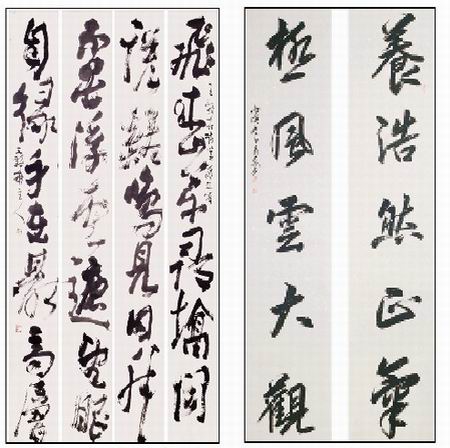 養浩然正氣
極風雲大觀
飛來山上千尋塔聞
說雞鳴見日升
不畏浮雲遮望眼
自緣身在最高層